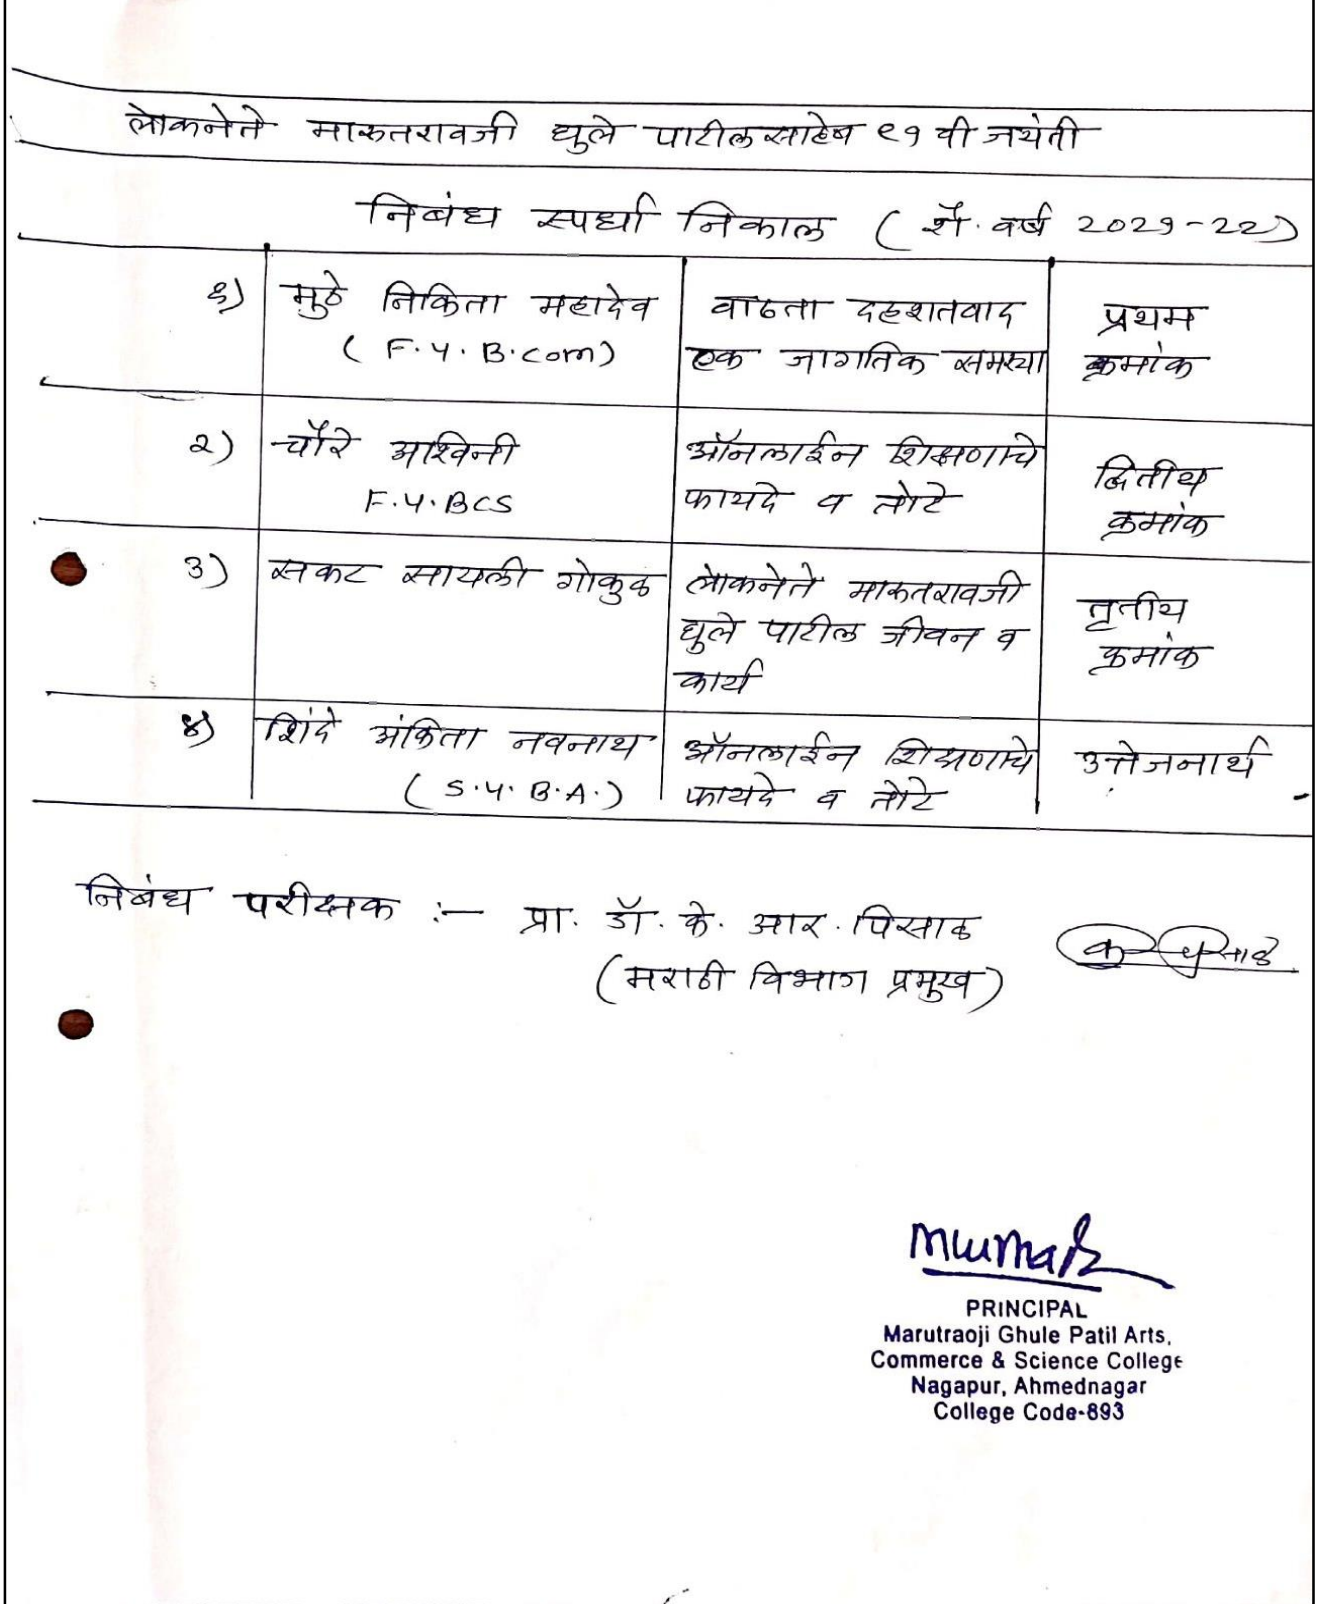 लोकनेते मारुतरावजी घुले पाटील साहेब ९१ वी जयंती
निबंध स्पर्धा निकाल ( शै. वर्ष २०२१-२२)
१) मुठे निकिता महादेव
( F.Y. B.com)
वाढता दहशतवाद
एक जागतिक समस्या
प्रथम
क्रमांक
२) चौरे अश्विनी
F.Y. BCS
ऑनलाईन शिक्षणाचे
फायदे व तोटे
द्वितीय
क्रमांक
३) सकट सायली गोकुळ
लोकनेते मारुतरावजी
घुले पाटील जीवन व
कार्य
तृतीय
क्रमांक
४) शिंदे अंकिता नवनाथ
( S.Y. B.A.)
ऑनलाईन शिक्षणाचे
फायदे व तोटे
उत्तेजनार्थ
निबंध परीक्षक :- प्रा. डॉ. के. आर. पिसाळ
(मराठी विभाग प्रमुख)
PRINCIPAL
Marutraoji Ghule Patil Arts,
Commerce & Science College
Nagapur, Ahmednagar
College Code-893